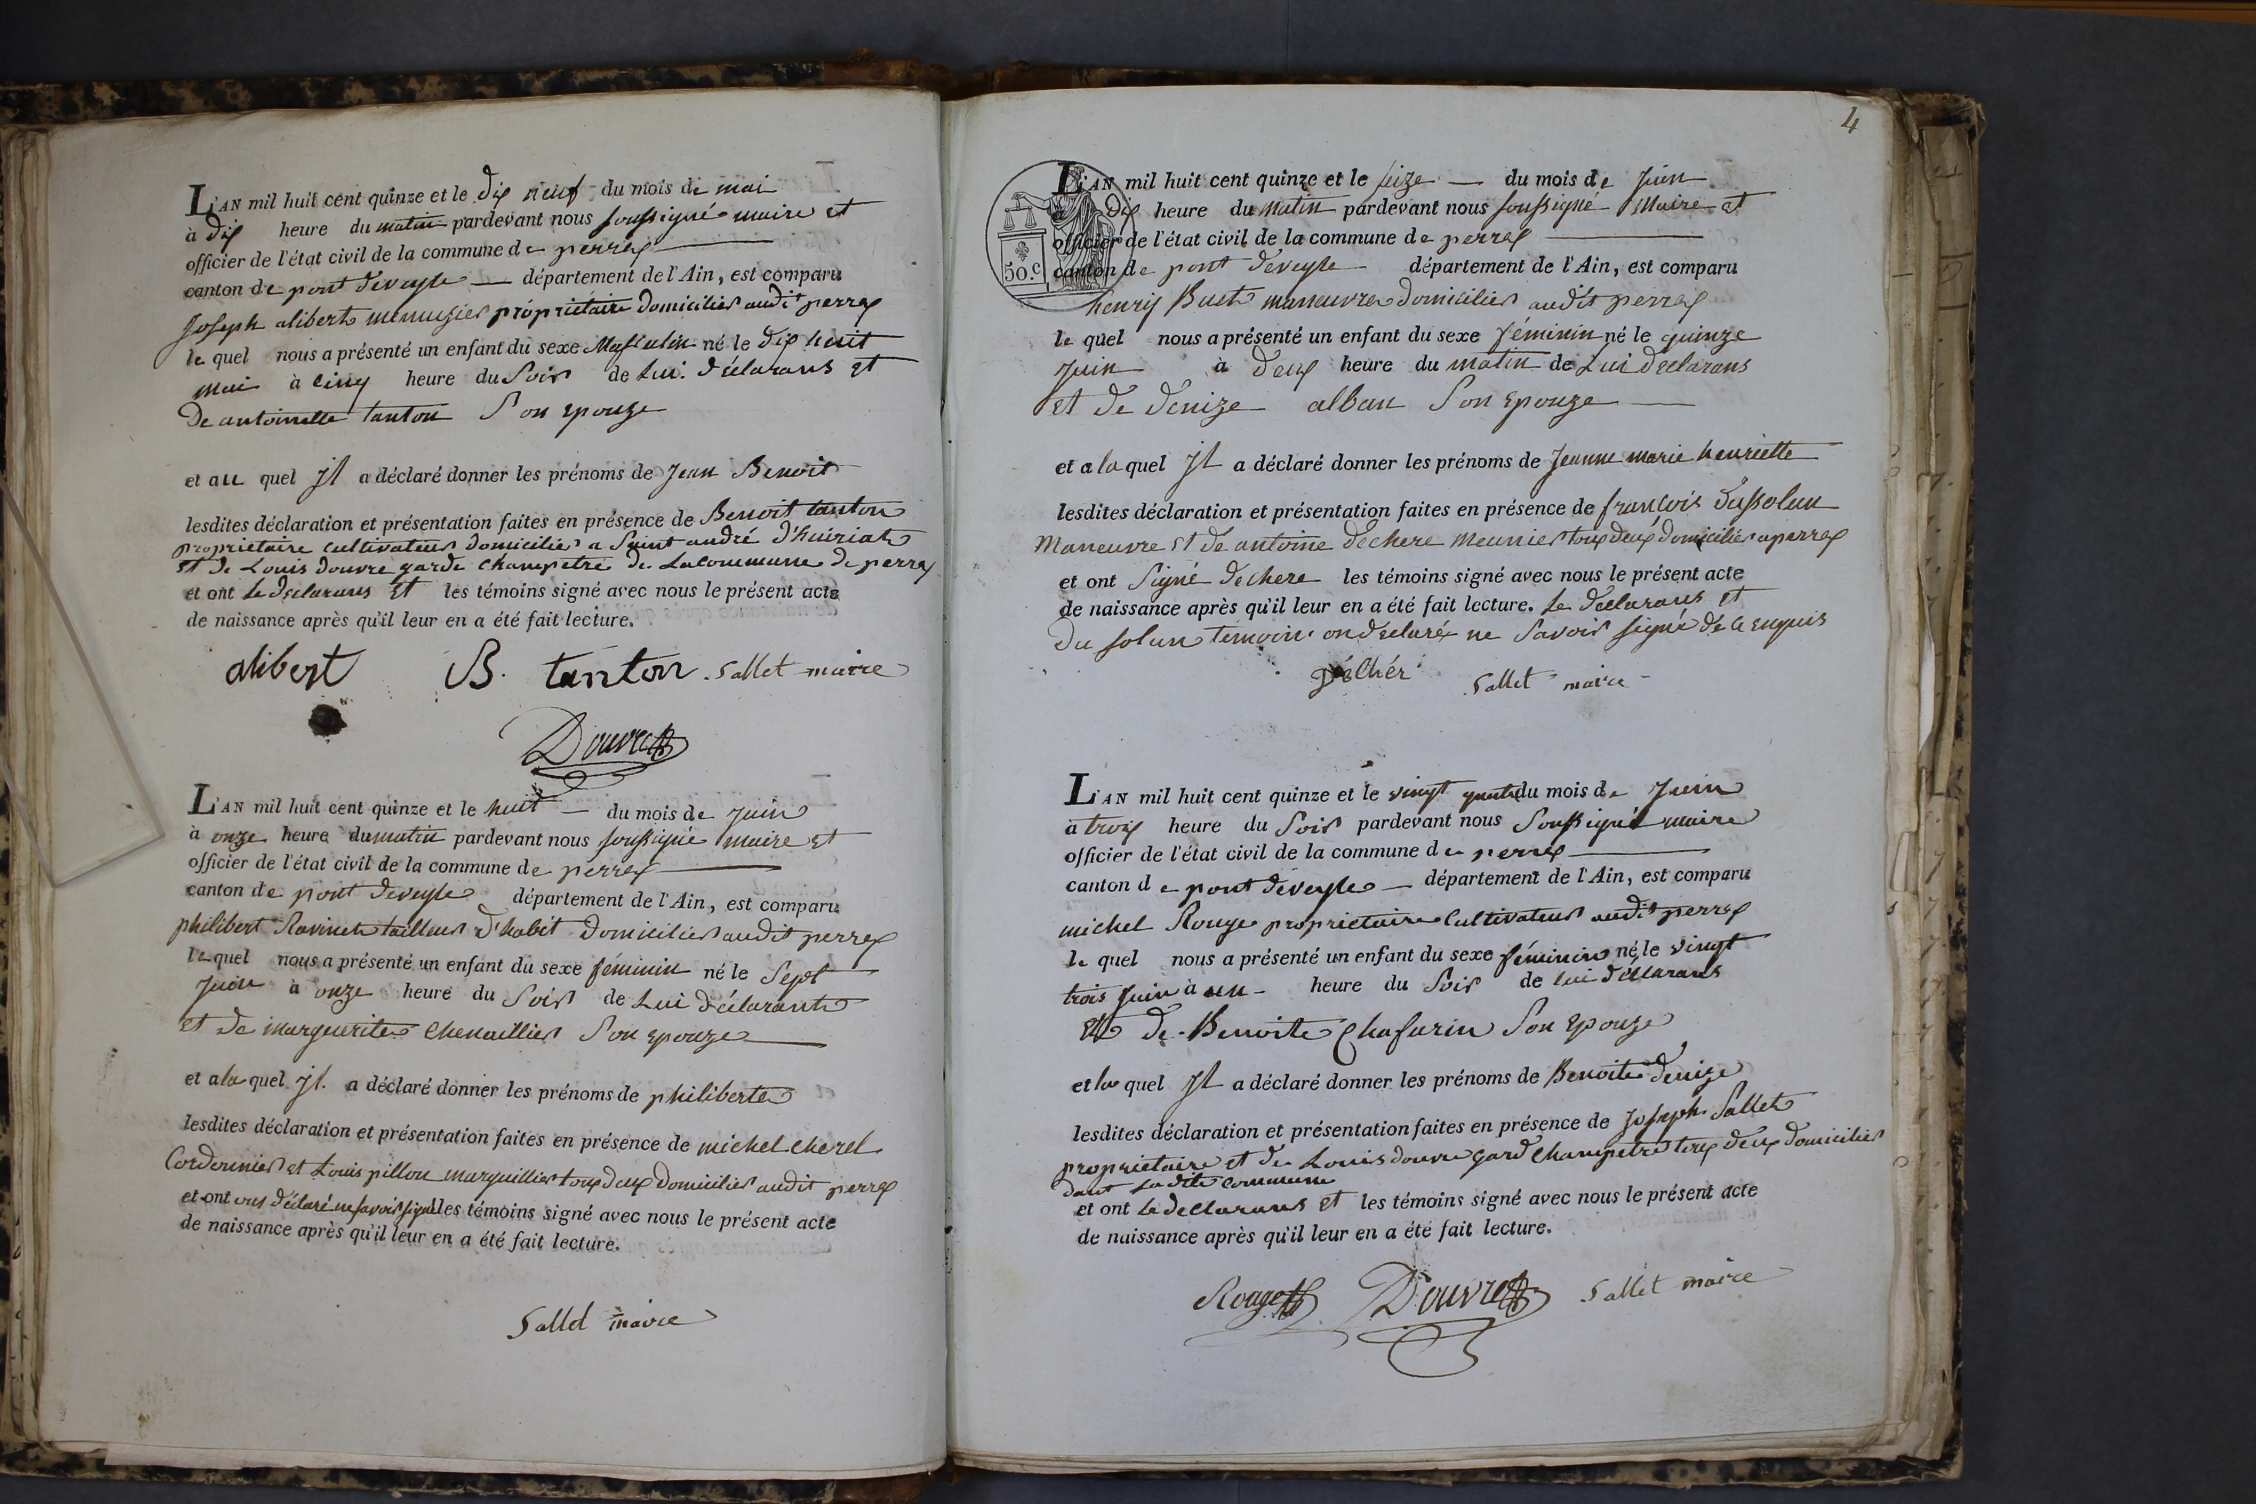 L'AN mil huit cent quinze et le dix neuf du mois de mai
à dix heure du matin pardevant nous soussigné maire et
officier de l'état civil de la commune de perrex
canton de pont deveyle département de l'Ain, est comparu
Joseph alibert menuzier propriétaire domicilier audit perrex
le quel nous a présenté un enfant du sexe Masculin né le dix huit
mai à cinq heure du Soir de Lui déclarans et
De antoinette tanton Son epouze
et au quel Jl a déclaré donner les prénoms de Jean Benoit
lesdites déclaration et présentation faites en présence de Benoit tanton
proprietaire cultivateur domicilier a Saint andré d'huiriat
et de Louis douvre garde champetre de La commune de perrex
et ont Le declarans et les témoins signé avec nous le présent acte
de naissance après qu'il leur en a été fait lecture.
alibert B. tanton Sallet maire
Douvre
L'AN mil huit cent quinze et le huit du mois de Juin
à onze heure du matin pardevant nous soussigné maire et
officier de l'état civil de la commune de perrex
canton de pont deveyle département de l'Ain, est comparu
philibert Ravinet tailleur d'habit domicilier audit perrex
le quel nous a présenté un enfant du sexe féminin né le Sept
Juin à onze heure du Soir de Lui déclarant
et de marguerite chenaillier Son epouze
et a la quel Jl. a déclaré donner les prénoms de philiberte
lesdites déclaration et présentation faites en présence de michel cherel
Cordonnier et Louis pillon marguillier tous deux domicilier audit perrex
et ont ons déclaré ne savoir signé les témoins signé avec nous le présent acte
de naissance après qu'il leur en a été fait lecture.
Sallet maire
4
50.c
L'AN mil huit cent quinze et le seize du mois de Juin
à dix heure du matin pardevant nous soussigné Maire et
officier de l'état civil de la commune de perrex
canton de pont deveyle département de l'Ain, est comparu
henry Buet maneuvre domicilier audit perrex
le quel nous a présenté un enfant du sexe féminin né le quinze
Juin à deux heure du matin de Lui declarans
et de denize alban Son epouze
et a la quel Jl a déclaré donner les prénoms de Jeanne marie henriette
lesdites déclaration et présentation faites en présence de françois dussolun
Maneuvre et de antoine dechere meunier tous deux domicilier a perrex
et ont Signé dechere les témoins signé avec nous le présent acte
de naissance après qu'il leur en a été fait lecture. Le declarans et
du solun temoin on declaré ne Savoir signé de ce enquis
déchér Sallet maire
L'AN mil huit cent quinze et le vingt quatre du mois de Juin
à trois heure du Soir pardevant nous Soussigné maire
officier de l'état civil de la commune de perrex
canton de pont deveyle département de l'Ain, est comparu
michel Rouge proprietaire Cultivateur audit perrex
le quel nous a présenté un enfant du sexe féminin né le vingt
trois Juin à un heure du Soir de lui déclarans
et de Benoite Chafurin Son epouze
et la quel Jl a déclaré donner les prénoms de Benoite denize
lesdites déclaration et présentation faites en présence de Joseph Sallet
proprietaire et de Louis douvre gard champetre tous deux domicilier
dant La dite commune
et ont Le declarans et les témoins signé avec nous le présent acte
de naissance après qu'il leur en a été fait lecture.
Rouge Douvre Sallet maire